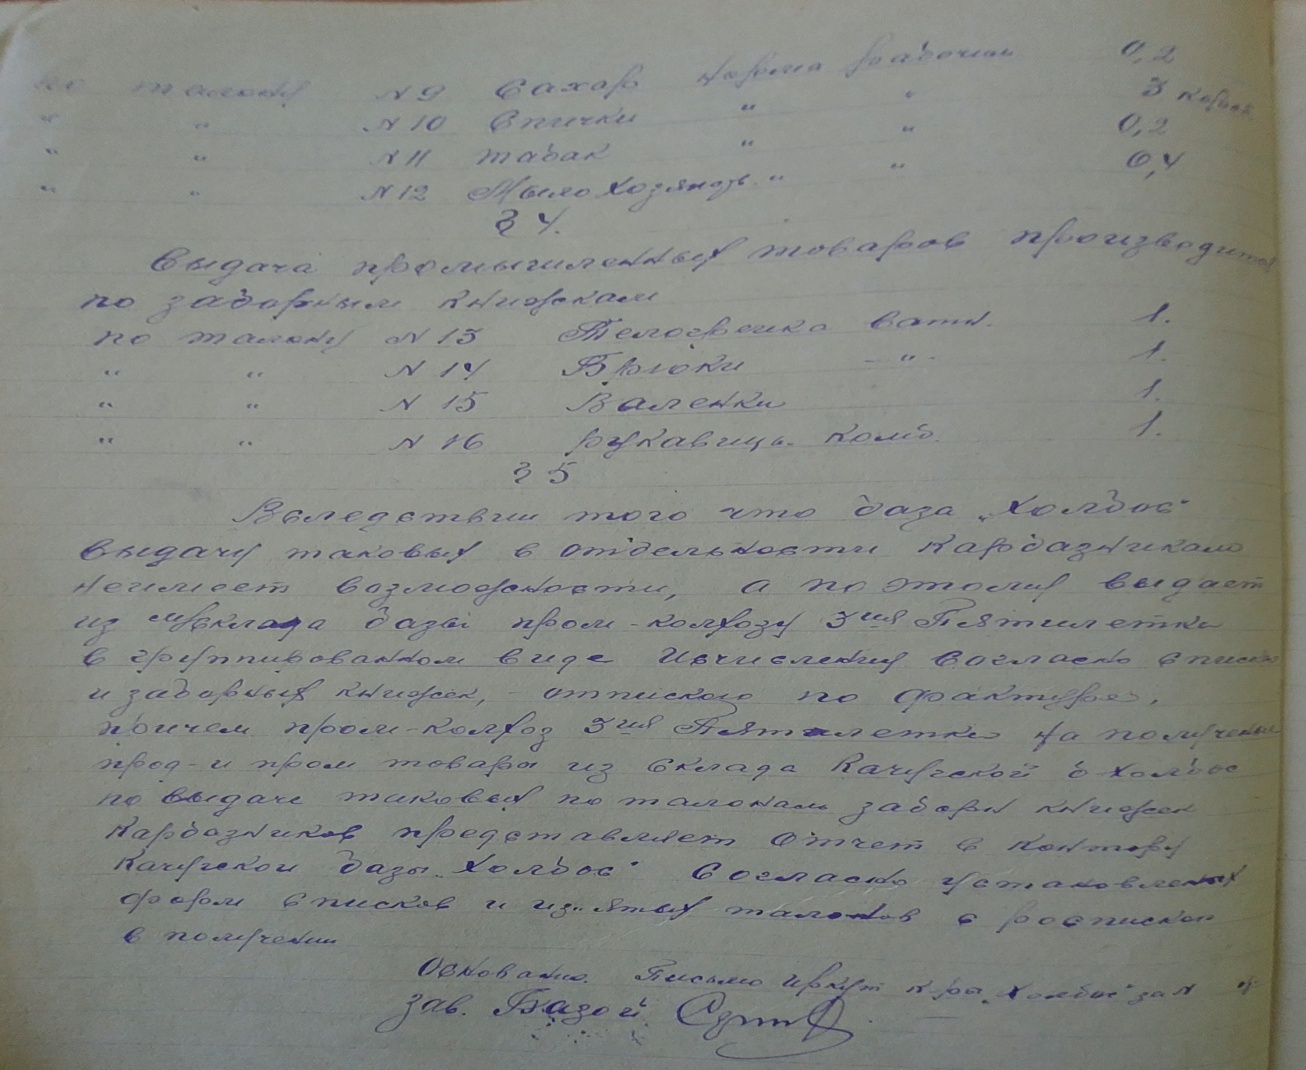 по талону N 9 Сахар норма рабочим 0,2
" " N 10 Спички " " 3 короб.
" " N 11 табак " " 0,2
" " N 12 Мыло Хозяйств. " " 0,4
§ 4.
Выдача промышленных товаров производится
по заборным книжкам
по талону N 13 Телогрейка ватн. 1.
" " N 14 Брюки - " - 1.
" " N 15 Валенки 1.
" " N 16 рукавицы комб. 1.
§ 5
Вследствии того что база „Холбос"
выдачу таковых в отдельности Карбазникам
неимеет возможности, а по этому выдает
из склада базы пром-колхозу 3ия Пятилетка
в групированном виде Исчисления Согласно списка
и заборных книжек, - отпиской по фактуре,
причем пром-колхоз 3ия Пятилетка на полученые
прод- и пром товары из склада Качугской б Холбос
по выдаче таковых по талонам заборн книжек
Карбазников представляет Отчет в контору
Качугской базы „Холбос" Согласно установленных
форм списков и из"ятых талонов с росписком
в получении
Основание. Письмо Иркут к-ры „Холбос" за N
Зав. Базой